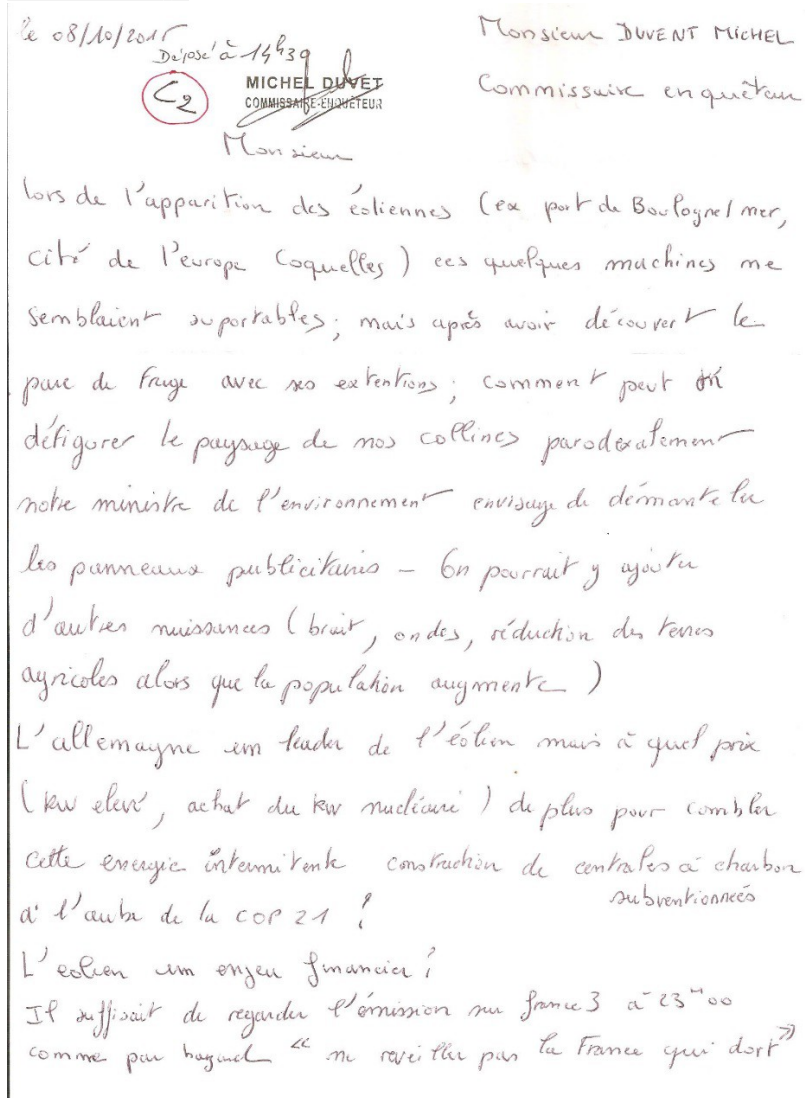 le 08/10/2015
Monsieur DUVENT MICHEL
Déposé à 14h39
C2
MICHEL DUVET
COMMISSAIRE-ENQUÊTEUR
Commissaire enquêteur
Monsieur
lors de l'apparition des éoliennes (ex port de Boulogne/mer,
cité de l'europe Coquelles) ces quelques machines me
semblaient suportables; mais après avoir découvert le
parc de Fruge avec ses extentions; comment peut on
défigurer le paysage de nos collines paradoxalement
notre ministre de l'environnement envisage de démanteler
les panneaux publicitaires – On pourrait y ajouter
d'autres nuissances (bruit, ondes, réduction des terres
agricoles alors que la population augmente)
L'allemagne un leader de l'éolien mais à quel prix
(kw elevé, achat du kw nucléaire) de plus pour combler
cette energie intermitente construction de centrales à charbon
subventionnées
à l'aube de la COP 21 !
L'eolien un enjeu financier !
Il suffisait de regarder l'émission sur france 3 à 23H00
comme par hazard "ne reveiller pas la France qui dort"